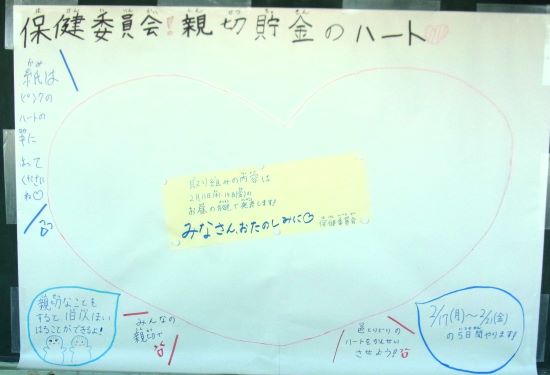 保健委員会! 親切貯金のハート
紙は
ピンクの
ハートの
中に
はって
ください
ね
取り組みの内容は
お昼の放送で発表します!
みなさん、おたのしみに
保健委員会
親切なことを
すると1枚
はることができるよ!
みんなの
親切で
色とりどりの
ハートをかんせい
させよう!
2/17(月)~2/21(金)
の5日間やります!